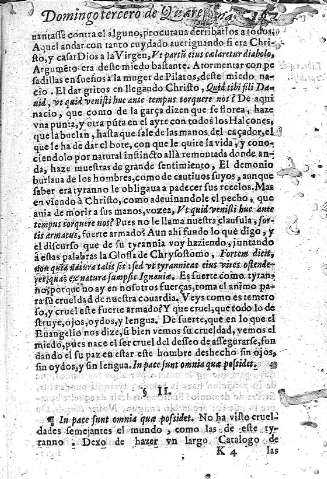 Domingo tercero de Quare
uantasse contra el alguno, procuraua derribarlos a todos.
Aquel andar con tanto cuydado aueriguando si era Chri-
sto, y casar Dios a la Virgen, Vt partus eius celaretur diabolo,
Argumẽto era desse miedo bastante. Atormentar con pe
sadillas en sueños a la muger de Pilatos, deste miedo na-
cio. El dar gritos en llegando Christo, Quid tibi fili Da-
uid, vt quid venisti huc ante tempus torquere nos? De aqui
nacio, que como de la garça dizen que se florea, haze
vna punta, y otra pũta en el ayre con todos los Halcones,
que la buelan, hasta que sale de las manos del caçador, el
que le ha de dar el bote, con que le quite la vida, y cono-
ciendolo por natural instincto alla remontada donde an-
da, haze muestras de grande sentimiento. El demonio
burlaua de los hombres, como de cautiuos suyos, aunque
saber era tyranno le obligaua a padecer sus recelos. Mas
en viendo à Christo, como adeuinandole el pecho, que
auia de morir a sus manos, vozea, Vt quid venisti huc ante
tempus torquere nos? Pues no le llama nuestra clausula, for-
tis armatus, fuerte armado? Aun ahi fundo lo que digo, y
el discurso que de su tyrannia voy haziendo, juntando
à estas palabras la Glossa de Chrysostomo, Fortem dicit,
non quia natura talis sit sed vt tyrannicas eius vires ostende-
ret, quas ex natura sumpsit Ignauia. Es fuerte como tyran-
no, porque no ay en nosotros fuerças, toma el animo pa-
ra su crueldad de nuestra couardia. Veys como es temero-
so, y cruel este fuerte armado? Y que cruel, que todo lo de
struye, ojos, oydos, y lengua. De fuerte, que en lo que el
Euangelio nos dize, si bien vemos su crueldad, vemos el
miedo, pues nace el ser cruel del desseo de assegurarse, fun
dando el su paz en estar este hombre deshecho sin ojos,
sin oydos, y sin lengua. In pace sunt omnia quæ possidet.
§ II.
¶ In pace sunt omnia quæ possidet. No ha visto cruel-
dades semejantes el mundo, como las de este ty-
ranno. Dexo de hazer vn largo Catalogo de
K 4 las